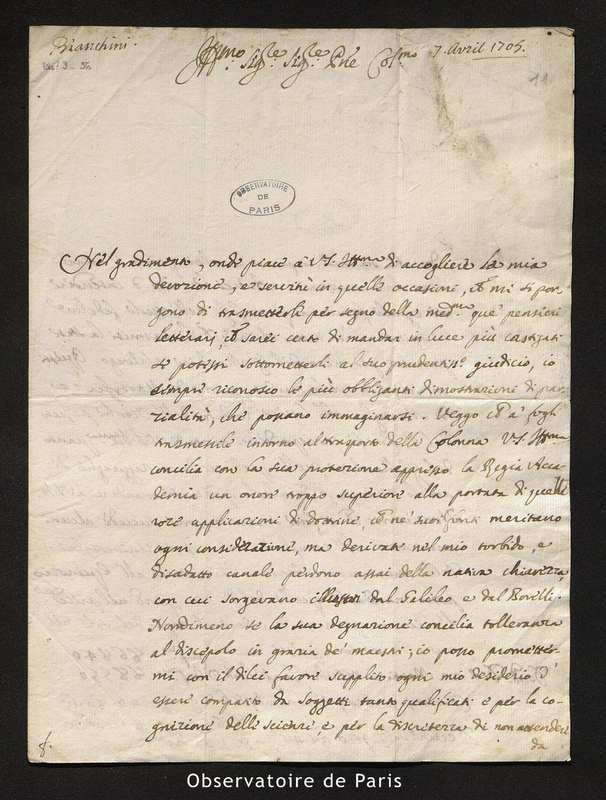 Bianchini.
Ill.mo Sig.re Sig.re P.ne Col.mo
7. Avril 1705.
11
OBSERVATOIRE
DE
PARIS
Nel gradimento, onde piace à V.S. Ill.ma di accogliere la mia
devozione, e servirà in quelle occasioni, ch'mi si pon
gono di trasmetterle per segno della med.ma que' pensieri
letterarj, ch' sarei certo di mandar in luce più castigati
se potessi sottometterli al suo prudentiss.o giudicio, io
sempre riconosco le più obbliganti dimostrazioni di par
zialità, che possano immaginarsi. Veggo ch' a' fogli
trasmessile intorno al trasporto della Colonna V.S. Ill.ma
concilia con la sua protezione appresso la Regia Acca
demia un onore troppo superiore alla portata di quelle
applicazioni di dottrine, ch' ne' suoi fonti meritano
ogni considerazione, ma derivate nel mio torbido, e
disadatto canale perdono assai della nativa chiarezza,
con cui sorgevano illustri dal Galileo e dal Borelli.
Nondimeno se la sua degnazione concilia tolleranza
al discepolo in grazia de' maestri; io posso prometter
mi con il di lei favore supplito ogni mio desiderio, d'
essere compatito da soggetti tanto qualificati e per la co-
gnizione delle scienze, e per la discretezza di non attendere
da
Observatoire de Paris